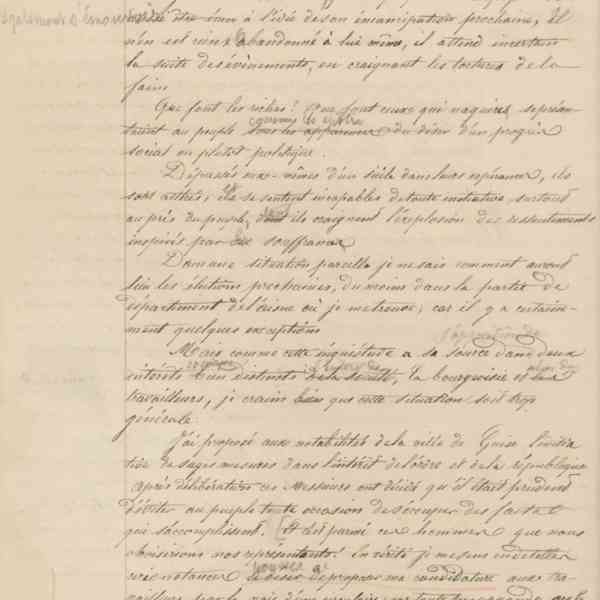 également s'émouvoir
être ému à l'idée de son émancipation prochaine, il
n'en est rien; abandonné à lui même, il attend incertain
la suite des évènements, en craignant les tortures de la
faim
Que font les riches? Que font ceux qui naguère se présen-
taient au peuple sous les apparences du désir d'un progrès
comme
social ou plutôt politique.
Dépassés eux-mêmes d'un siècle dans leurs espérances, ils
sont altérés; ils se sentent incapables de toute initiative surtout
auprès du peuple, dont ils craignent l'explosion des ressentiments
inspirés par la souffrance
Dans une situation pareille je ne sais comment auront
lieu les élections prochaines, du moins dans la partie du
département de l'aisne où je me trouve; car il y a certaine-
ment quelques exceptions
Mais comme cette inquiétude a sa source dans deux
intérêts bien distincts, la bourgeoisie et
travailleurs, je crains bien que cette situation soit trop
générale.
J'ai proposé aux notabilités de la ville de Guise l'initia-
tive de sages mesures dans l'intérêt de l'ordre et de la république
après délibération ces Messieurs ont décidé qu'il était prudent
d'éviter au peuple toute occasion de s'occuper des faits
qui s'accomplissent. Et c'est parmi ces hommes que nous
choisirions nos représentants! En vérité je me sens
de proposer ma candidature aux tra-
vailleurs par la voie d'une circulaire